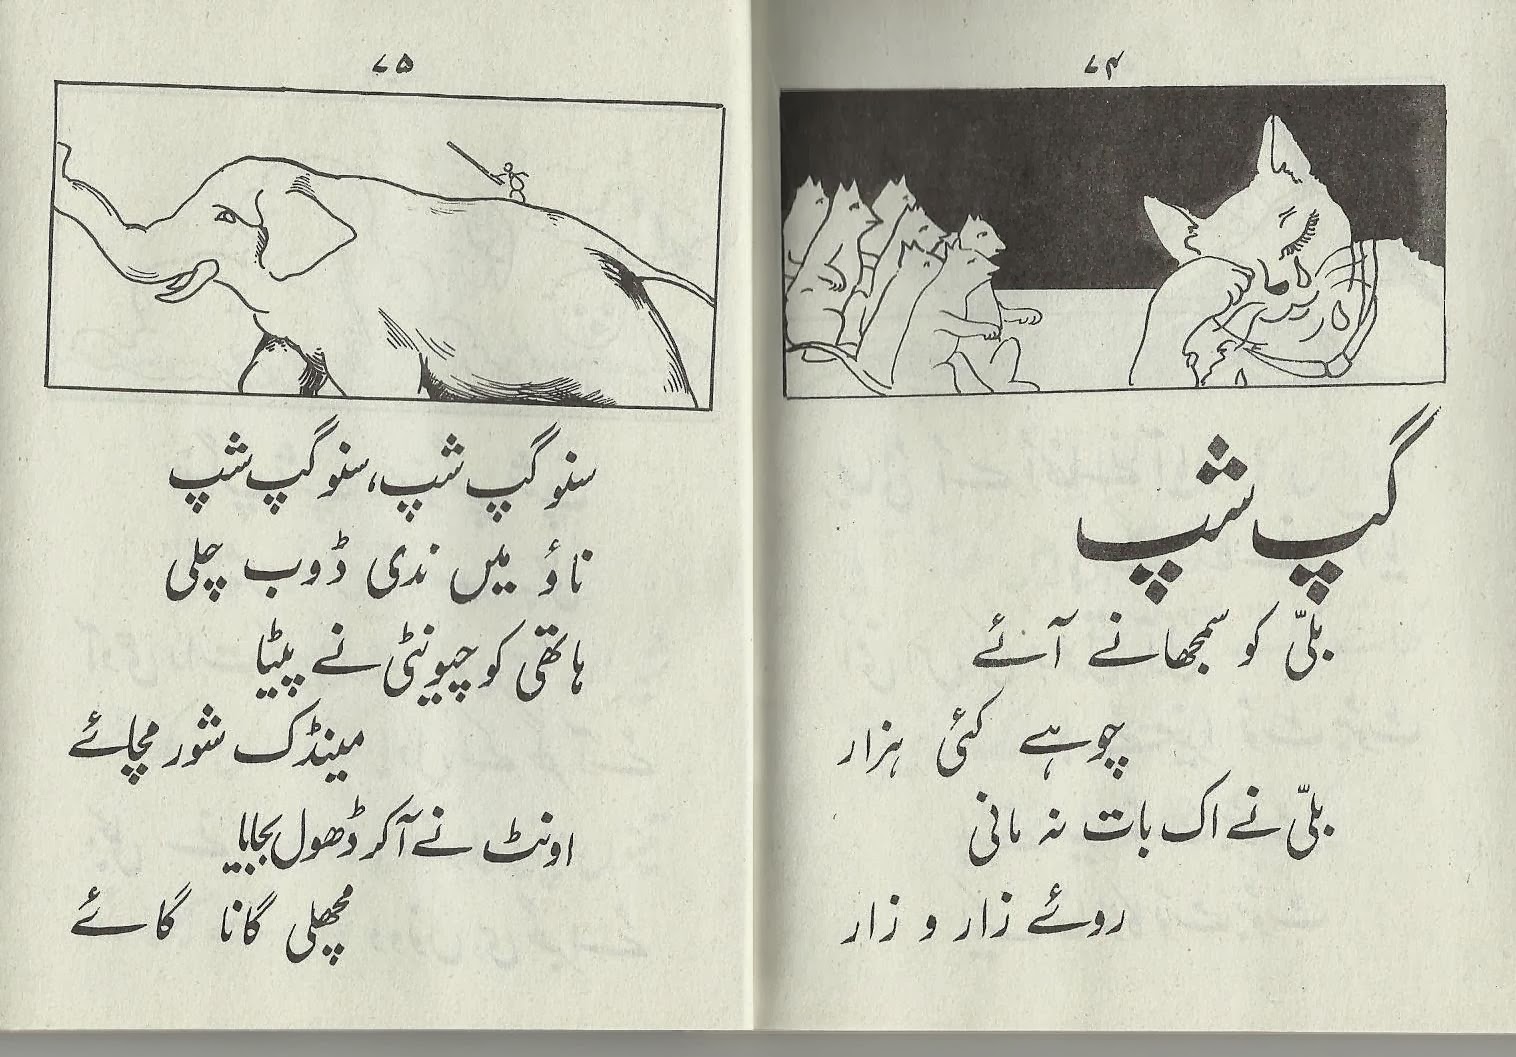 ۷۴
گپ شپ
بلّی کو سمجھانے آئے
چوہے کئی ہزار
بلّی نے اک بات نہ مانی
روئے زار و زار
۷۵
سنو گپ شپ، سنو گپ شپ
ناؤ میں ندی ڈوب چلی
ہاتھی کو چیونٹی نے پیٹا
مینڈک شور مچائے
اونٹ نے آکر ڈھول بجایا
مچھلی گانا گائے